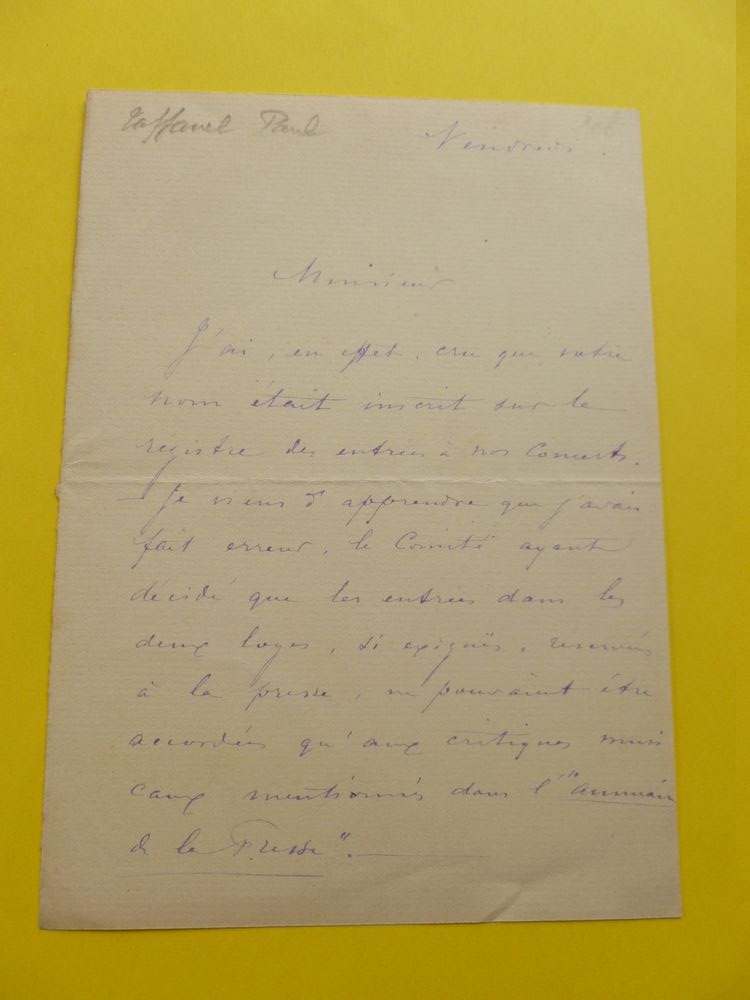 Taffanel Paul
Vendredi.
Monsieur
J'ai, en effet, cru que votre
nom était inscrit sur le
registre des entrées à nos Concerts.
— Je viens d'apprendre que j'avais
fait erreur, le Comité ayant
décidé que les entrées dans les
deux loges, si exiguës, reservées
à la presse, ne pouvaient être
accordées qu'aux critiques musi
caux mentionnés dans l'"Annuaire
de la Presse".